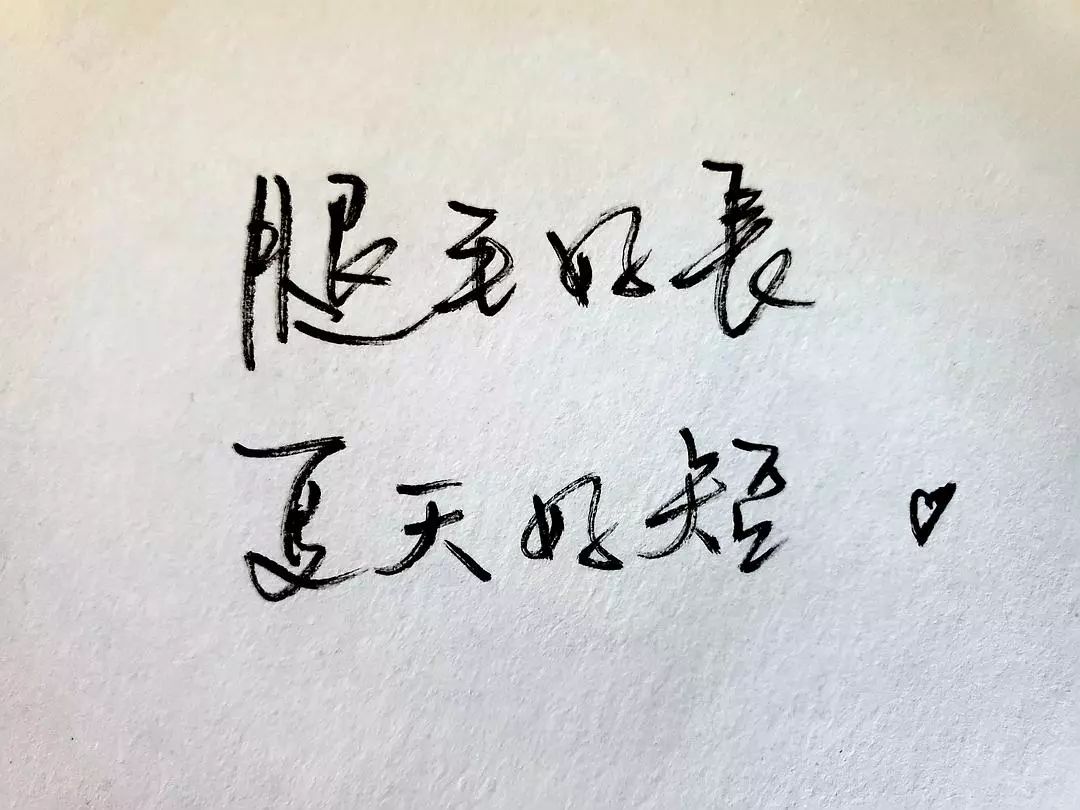 腿毛好長
夏天好短